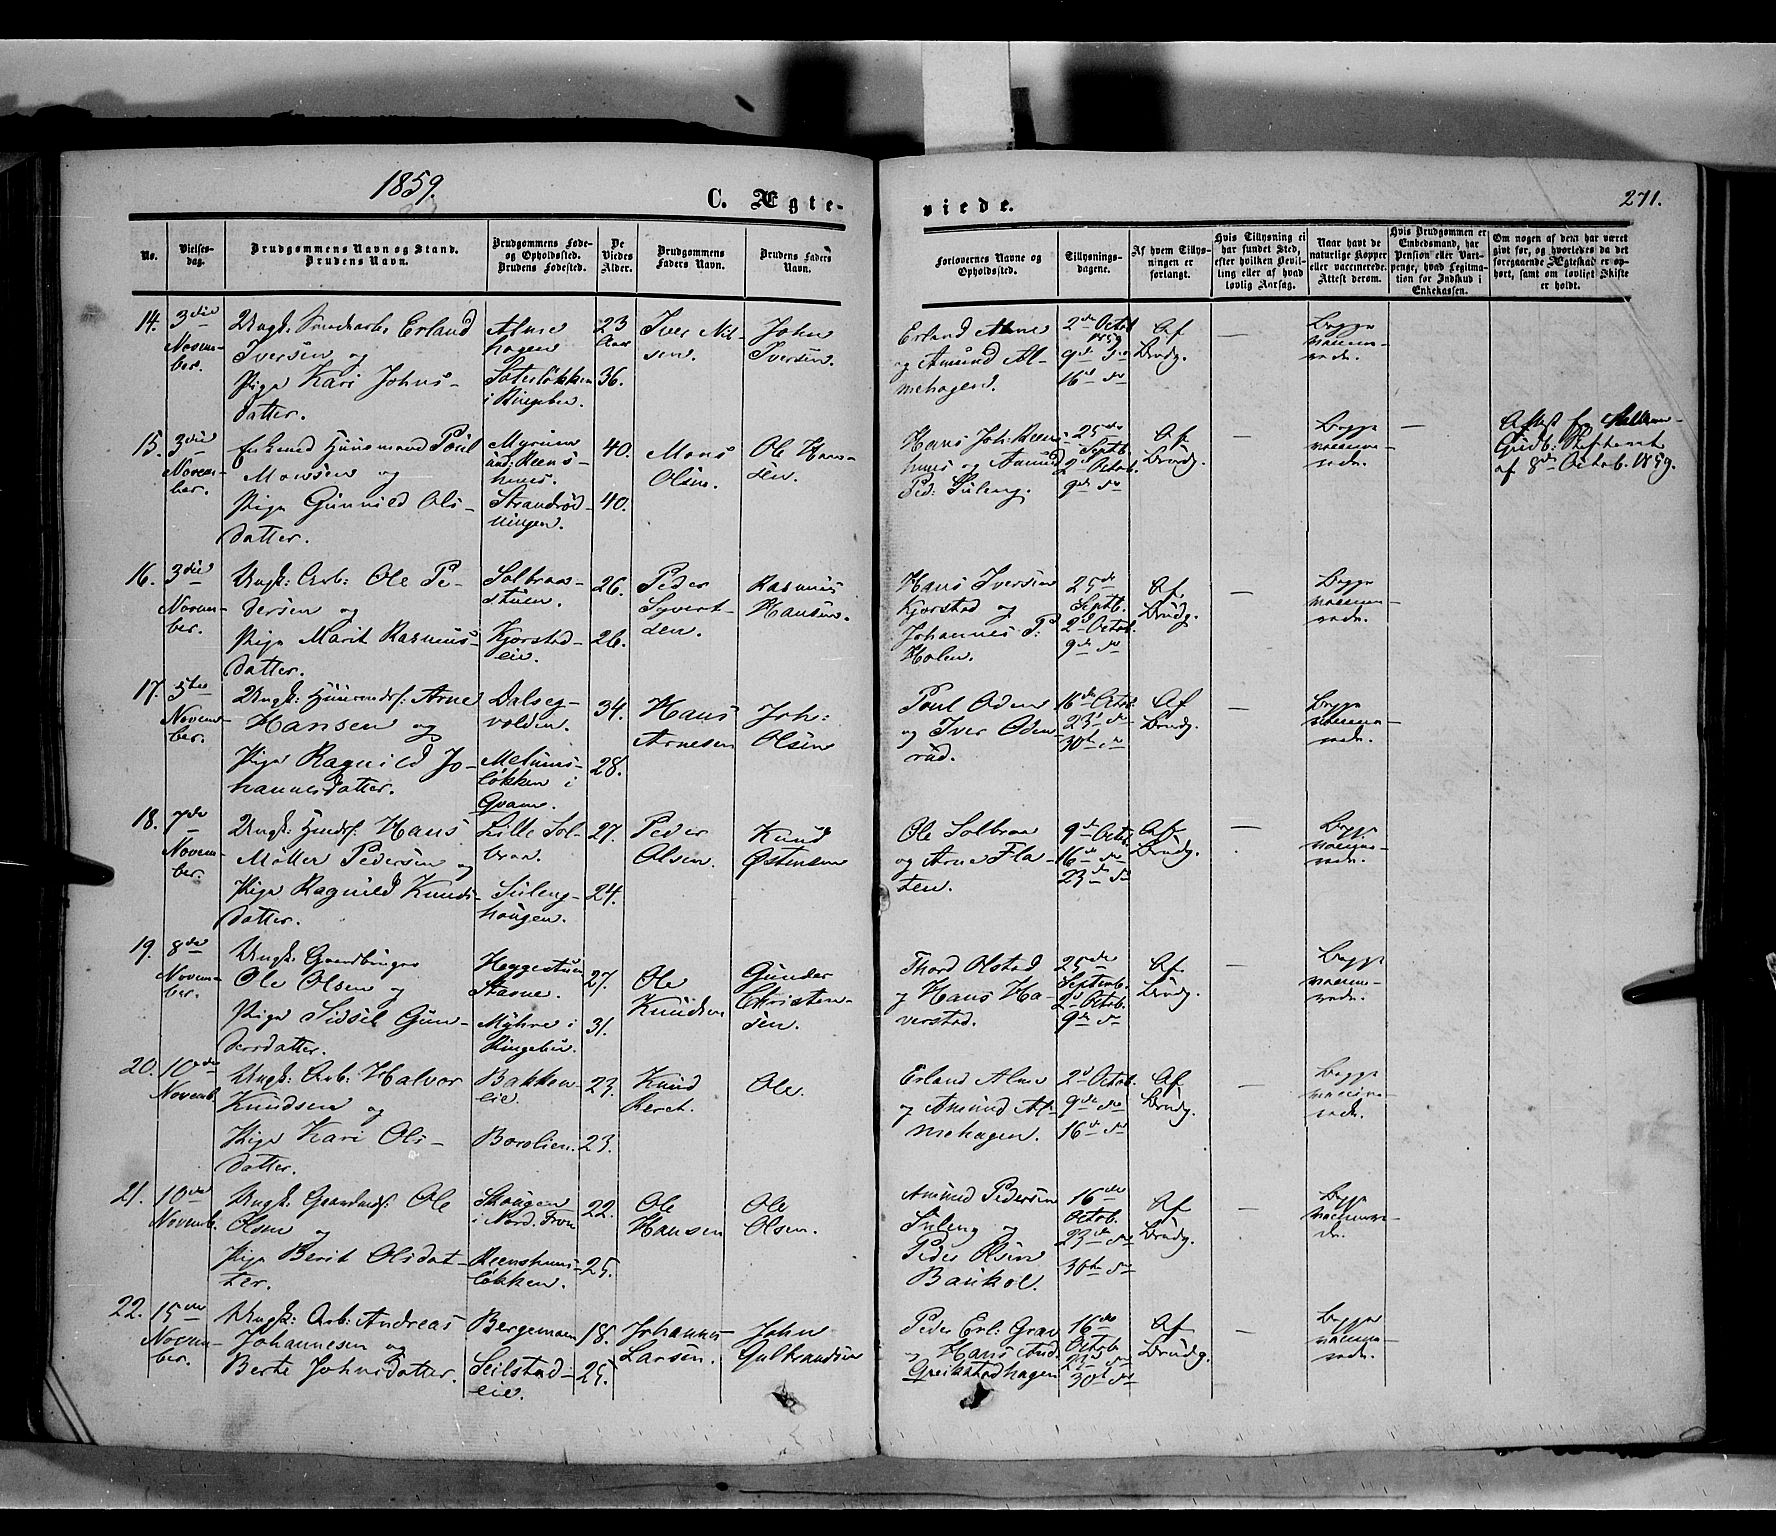 1859.
C. Ægte-
viede.
271.
No.
Vielses-
dag.
Brudgommens Navn og Stand.
Brudens Navn.
Brudgommens Føde-
og Opholdssted.
Brudens Fødested.
De
Viedes
Alder.
Brudgommens
Faders Navn.
Brudens Faders
Navn.
Forlovernes Navne og
Opholdssted.
Tillysnings-
dagene.
Af hvem Tillys-
ningen er
forlangt.
Hvis Tillysning ei
har fundet Sted,
efter hvilken Bevil-
ling eller af hvad
lovlig Aarsag.
Naar havt de
naturlige Kopper
eller vaccinerede.
Attest derom.
Hvis Brudgommen er
Embedsmand, har
Pension eller Vart-
penge, hvad Legitima-
tion for Indskud i
Enkekassen.
Om nogen af dem har været
givt før, og hvorledes da det
foregaaende Ægteskab er op-
hørt, samt om lovligt Skifte
er holdt.
14. 3die
Novem-
ber.
Ungk. Erland
Iversen og
Pige Kari Johns-
datter.
Alme
hagen
i Ringebu.
23
Aar
36.
Iver Nil-
sen.
John
Iversen.
Erland Alme
og Amund Al-
mehagen.
2den Octob.
1859
9de do
16de do
Af
Brudg.
—
Begge
vaccine-
rede.
15. 3die
Novem-
ber.
Enkemd Huusmand Poul
Monsen og
Pige Gunnild Ols-
datter.
Strandrød-
ningen.
40.
40.
Mons
Olsen.
Ole Han-
sen.
Hans Joh:
og Amund
Ped: Suleng.
25de
Septb.
2den Octob.
9de do
Af
Brudg.
—
Begge
vaccine-
rede.
—
Attest fra
Gudb:
af 8de Octob. 1859.
16. 3die
Novem-
ber.
Ungk: Arb: Ole Pe-
dersen og
Pige Marit Rasmus-
datter.
Solbraa-
stuen.
Kjorstad-
eie.
26.
26.
Peder
Syvert-
sen.
Rasmus
Hansen.
Hans Iversen
Kjorstad og
Johannes P:
Holen.
25de
Septb.
2den Octob.
9de do
Af
Brudg.
—
Begge
vaccine-
rede.
17. 5te
Novem-
ber.
Ungk: Huusmdsf: Arne
Hansen og
Pige Ragnild Jo-
hannesdatter.
Dalseg-
volden.
Melums-
løkken i
Qvam.
34.
28.
Hans
Arnesen
Joh:
Olsen
Poul Oden
og Iver Oden-
rud.
16de Octob.
23de do
30te do
Af
Brudg.
—
Begge
vaccine-
rede.
18. 7de
Novem-
ber.
Ungk: Hans
Møller Pedersen og
Pige Ragnild Knuds-
datter.
Lille Sol-
braa.
Suleng-
haugen.
27.
24.
Peder
Olsen.
Knud
Østensen
Ole Solbraa
og Arne Fla-
ten.
9de Octob.
16de do
23de do
Af
Brudg.
—
Begge
vaccine-
rede.
19. 8de
Novem-
ber.
Ungk: Gaardbruger
Ole Olsen og
Pige Sidsel Gun-
dersdatter.
Heggestuen
Stavne.
Myhre i
Ringebu.
27.
31.
Ole
Knudsen
Gunder
Christen-
sen.
Thord Olstad
og Hans Ha-
verstad.
25de
Septemb.
2den Octob.
9de do
Af
Brudg.
—
Begge
vaccine-
rede.
20. 10de
Novemb.
Ungk: Arb: Halvor
Knudsen og
Pige Kari Ols-
datter.
Bakken-
eie.
Borolien.
23.
23.
Knud
Ole.
Erland Alme
og Amund Al-
mehagen.
2den Octob.
9de do
16de do
Af
Brudg.
—
Begge
vaccine-
rede.
21. 10de
Novemb.
Ungk: Ole
Olsen og
Pige Berit Olsdat-
ter.
Skougen
i Nord. Fron
løkken.
22.
25.
Ole
Hansen
Ole
Olsen.
Amund Pedersen
Suleng og
Peder Olsen
Baukol.
16de
Octob.
23de do
30te do
Af
Brudg.
—
Begge
vaccinere-
de.
22. 15de
Novem-
ber.
Ungk: Arb: Andreas
Johannesen og
Berte Johnsdatter.
Bergemoen
Seilstad-
eie.
18.
25.
Johannes
Larsen.
John
Gulbrandsen
Peder Erl: Grav
og Hans And.
Greibstadhagen
16de
Octob.
23de do
30te do
Af
Brudg.
—
Begge
vaccine-
rede.